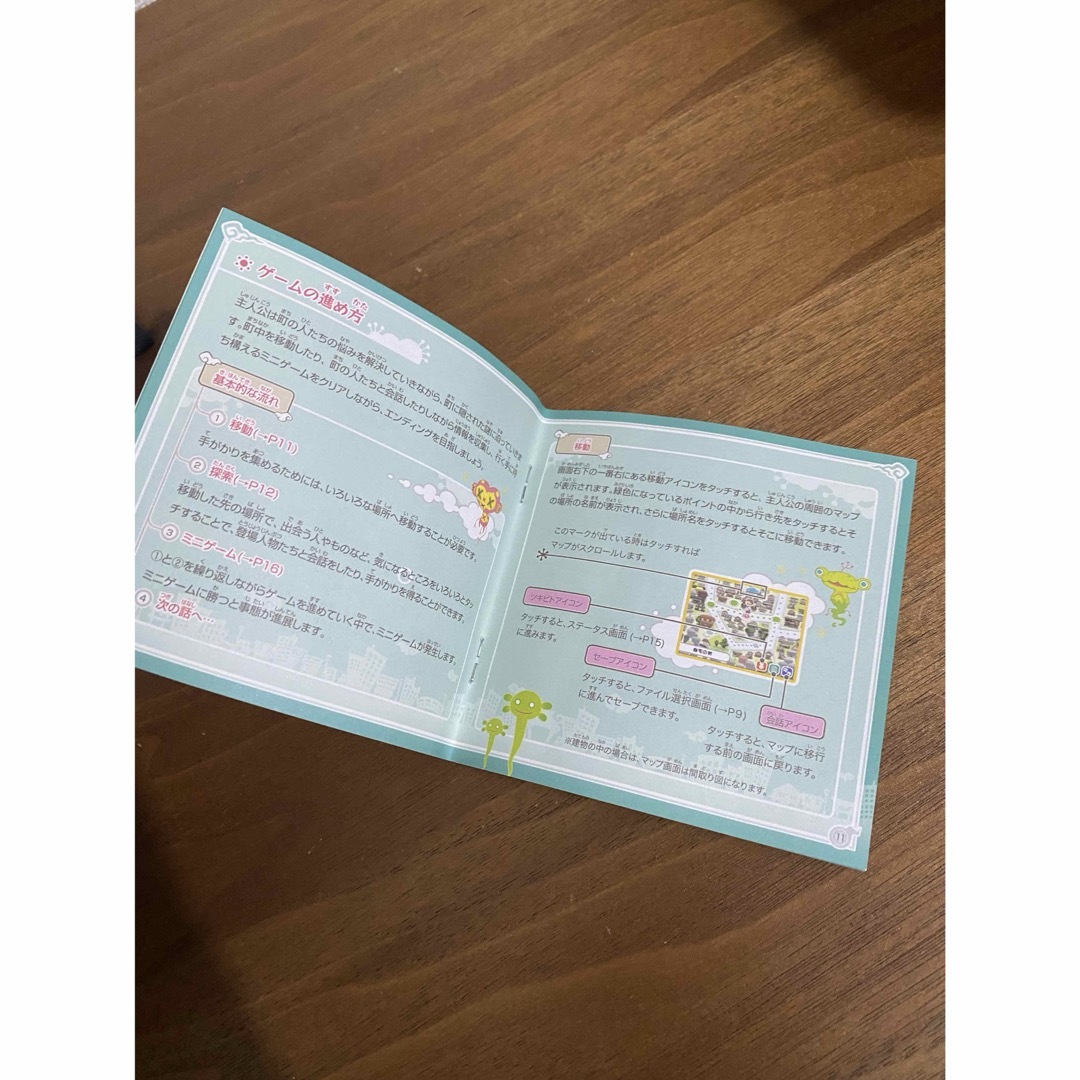 ゲームの進め方
主人公は町の人たちの悩みを解決していきながら、町に隠された謎に沿っていきま
す。町中を移動したり、町の人たちと会話したりしながら情報を収集し、行く手に待
ち構えるミニゲームをクリアしながら、エンディングを目指しましょう。
基本的な流れ
① 移動(→P11)
手がかりを集めるためには、いろいろな場所へ移動することが必要です。
② 探索(→P12)
移動した先の場所で、出会う人やものなど、気になるところをいろいろとタッ
チすることで、登場人物たちと会話をしたり、手がかりを得ることができます。
③ ミニゲーム(→P16)
①と②を繰り返しながらゲームを進めていく中で、ミニゲームが発生します。
ミニゲームに勝つと事態が進展します。
④ 次の話へ…
移動
画面右下の一番右にある移動アイコンをタッチすると、主人公の周囲のマップ
が表示されます。緑色になっているポイントの中から行き先をタッチするとそ
の場所の名前が表示され、さらに場所名をタッチするとそこに移動できます。
このマークが出ている時はタッチすれば
マップがスクロールします。
ツキビトアイコン
タッチすると、ステータス画面(→P15)
に進みます。
セーブアイコン
タッチすると、ファイル選択画面(→P9)
に進んでセーブできます。
会話アイコン
タッチすると、マップに移行
する前の画面に戻ります。
※建物の中の場合は、マップ画面は間取り図になります。
11